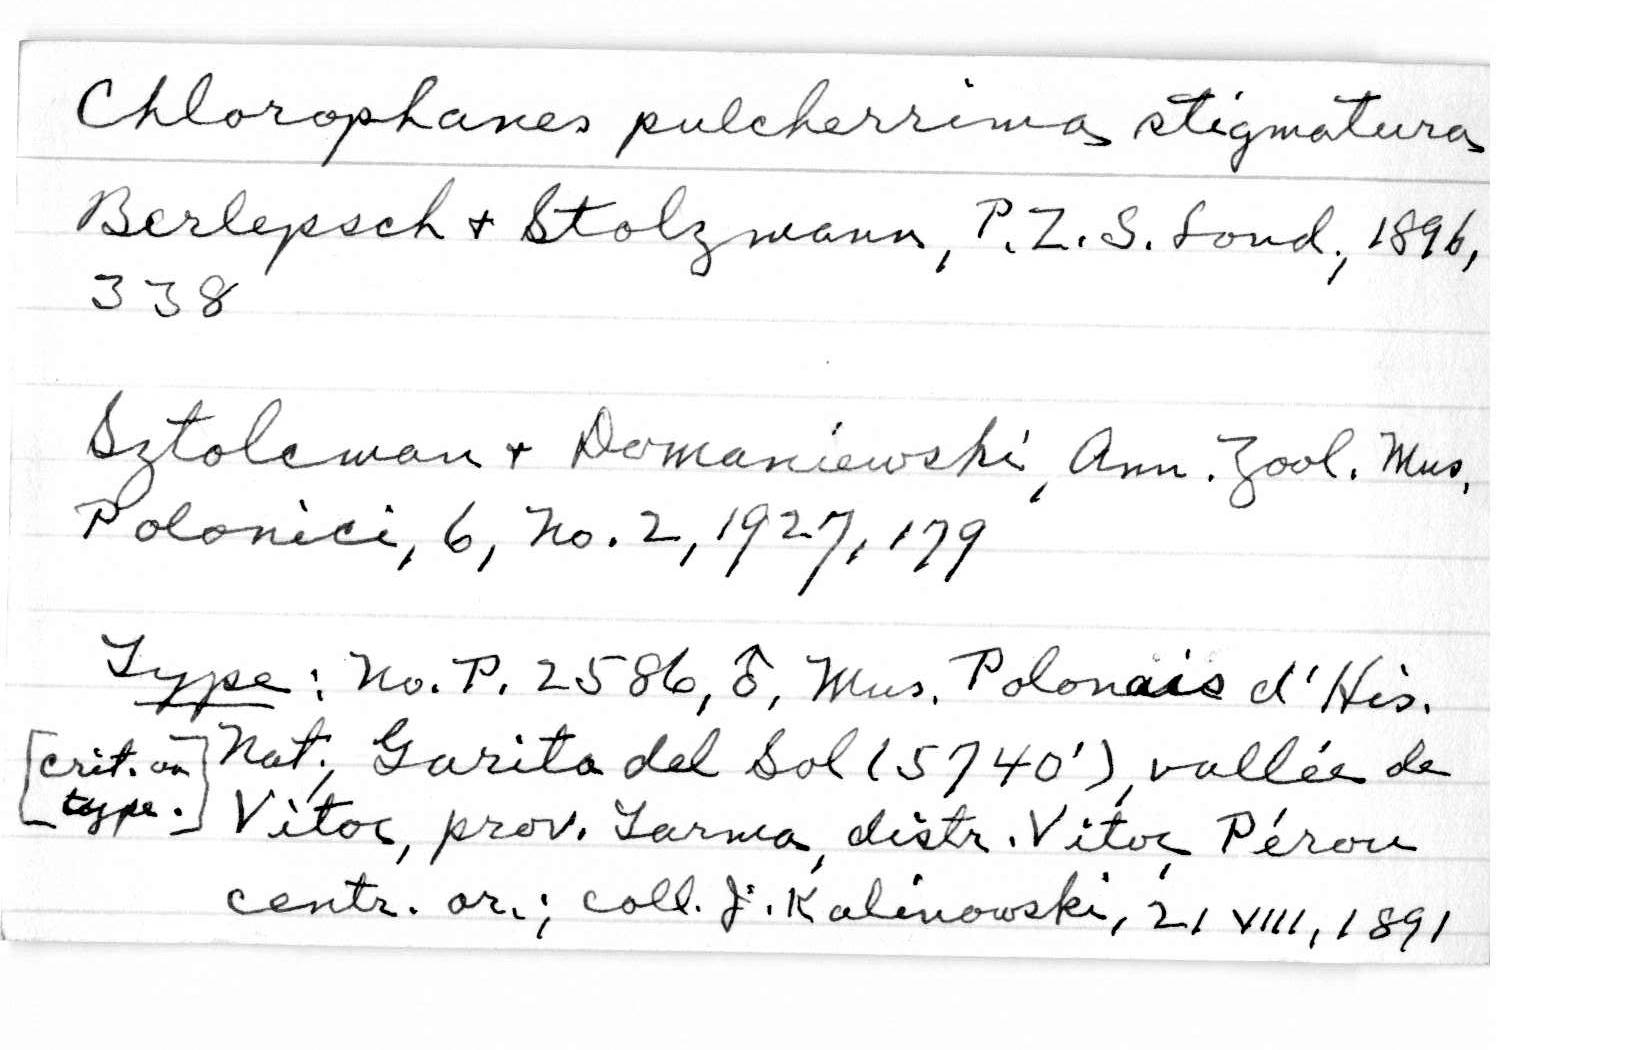 Chlorophanes pulcherrima stigmatura
Berlepsch + Stolzmann, P.Z.S. Lond., 1896,
338
Sztolcman + Domaniewski, Ann. Zool. Mus.
Polonici, 6, No. 2, 1927, 179
Type: No. P. 2586, ♂, Mus. Polonais d'His.
[crit. on type.] Nat., Garita del Sol (5740'), vallée de
Vitoc, prov. Tarma, distr. Vitoc, Pérou
centr. or.; coll. J. Kalinowski, 21 VIII, 1891